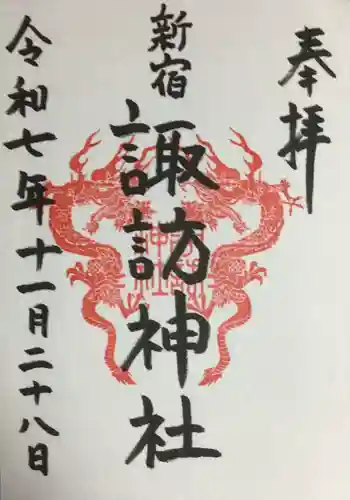 奉拝
新宿
諏訪神社
令和七年十一月二十八日